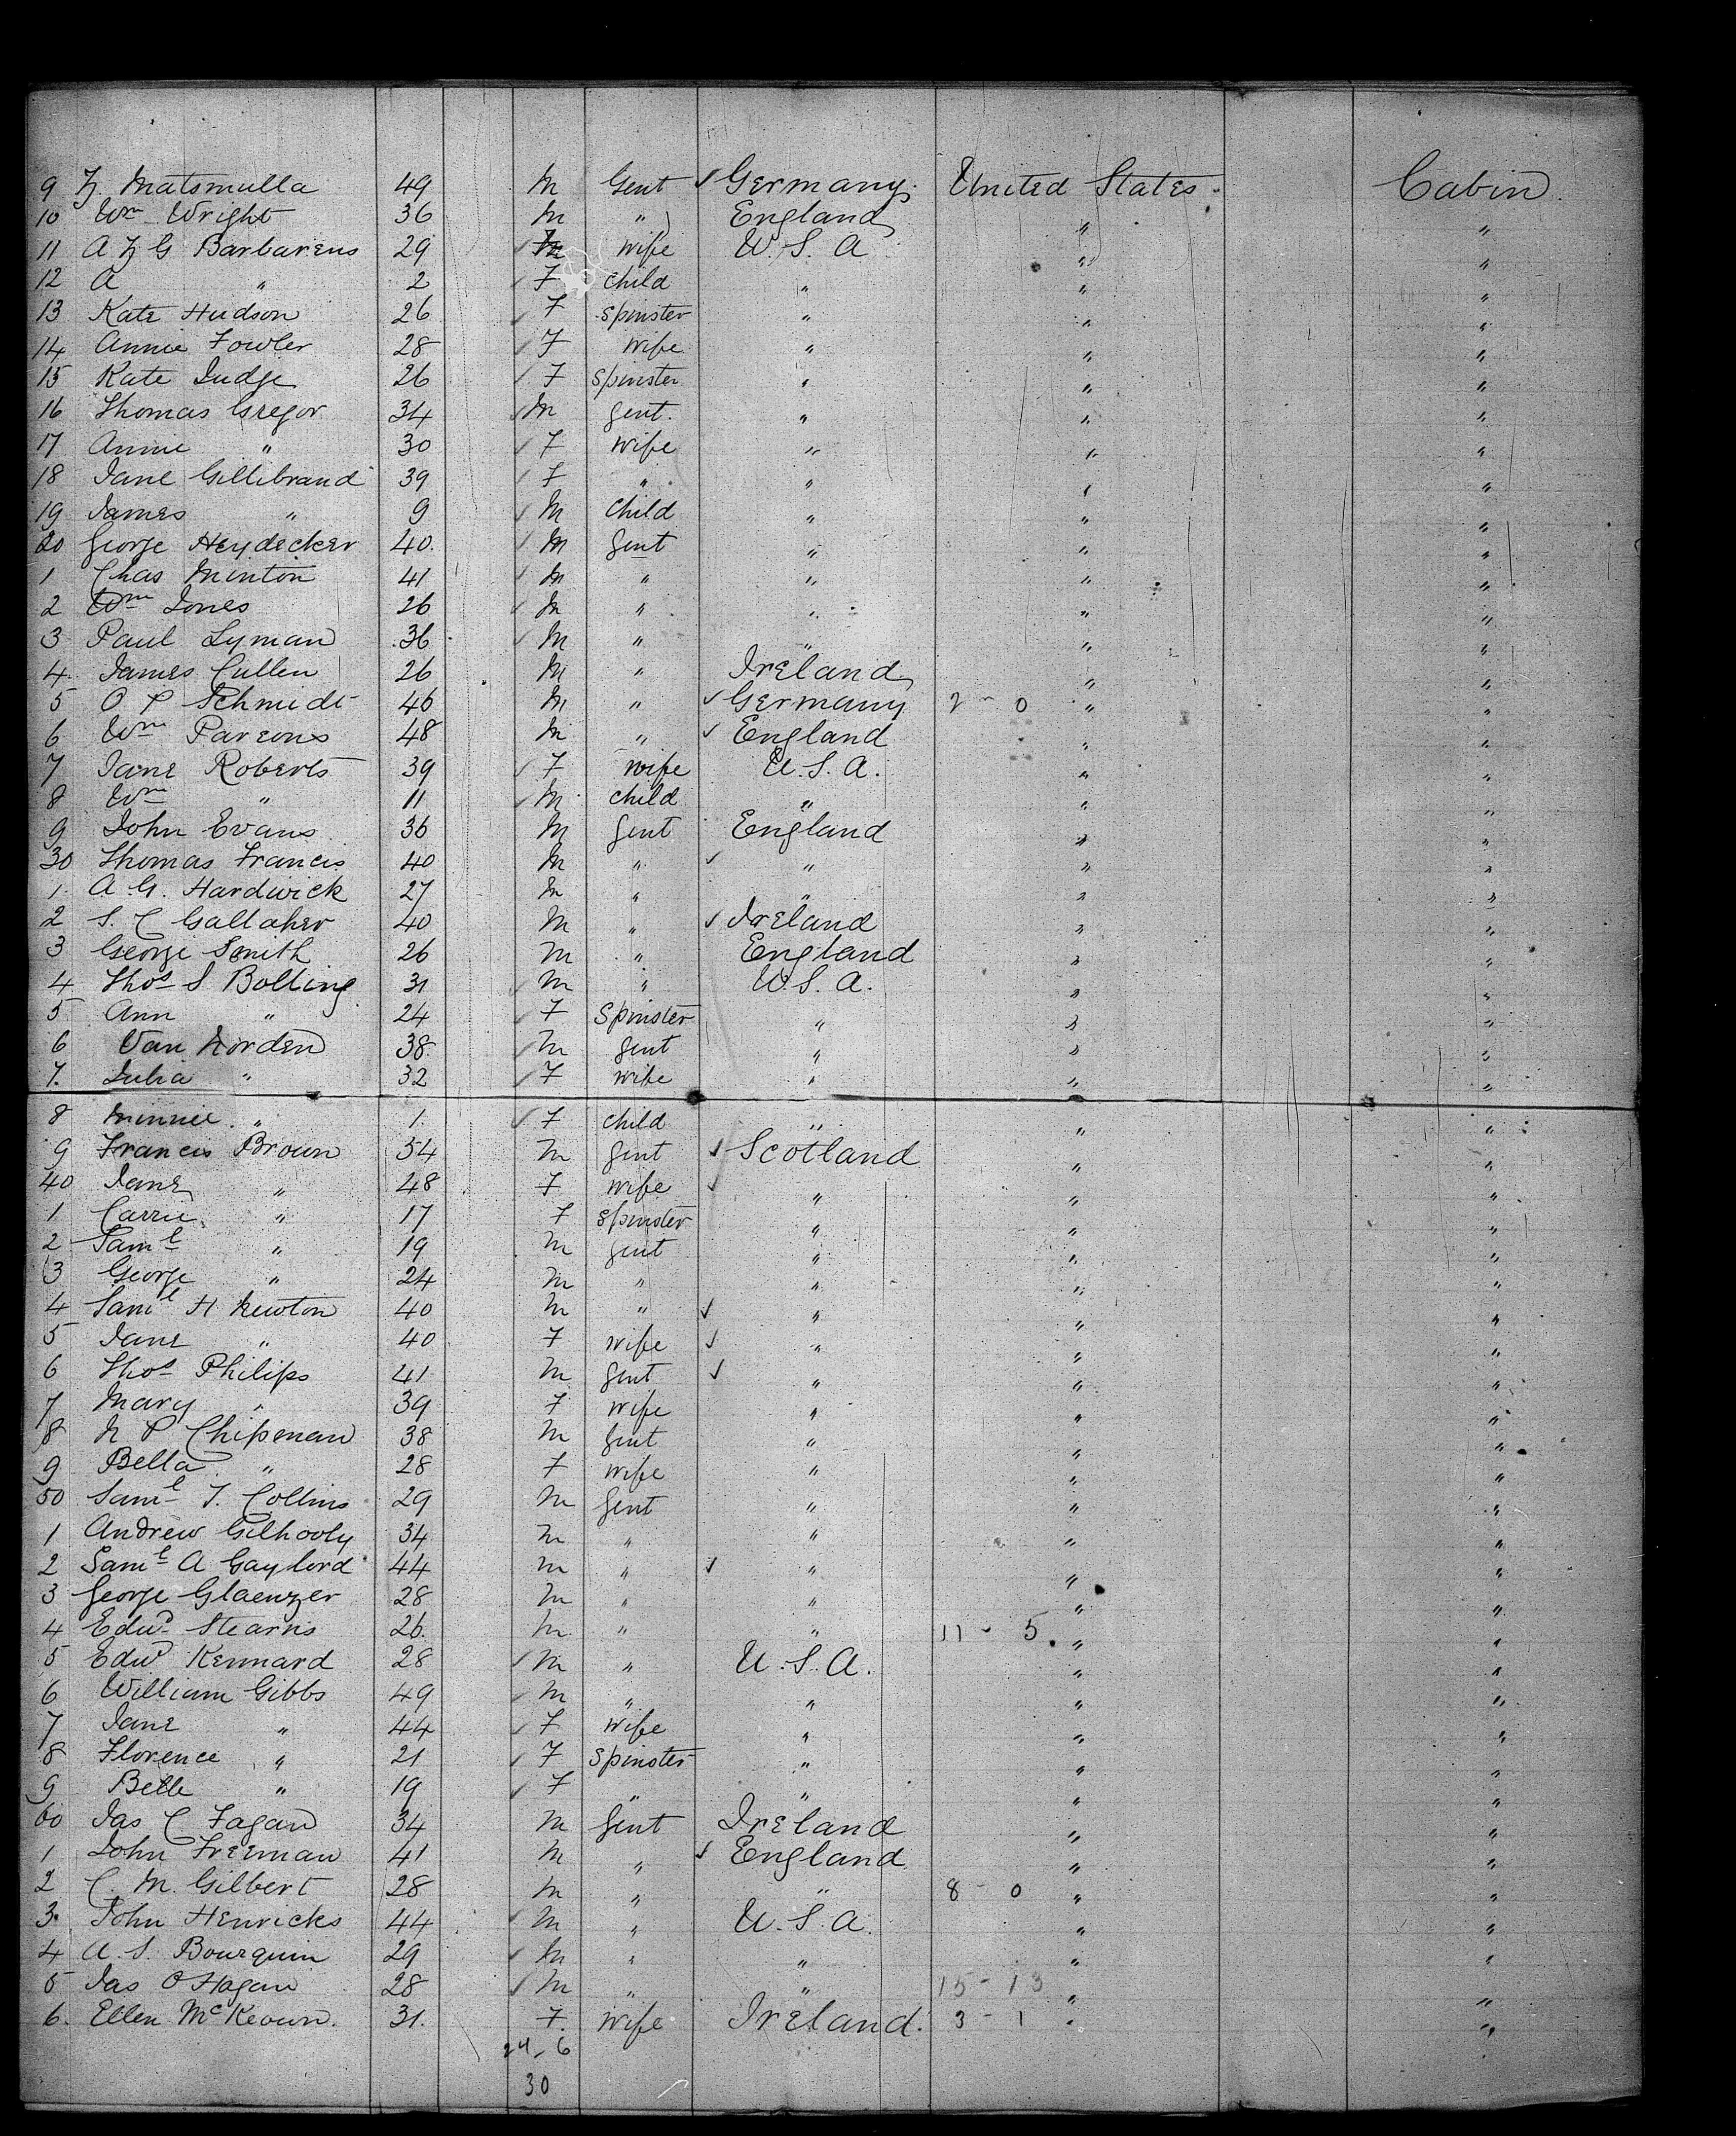 9 H. Matsmulla 49 M Gent ✓ Germany. United States. Cabin.
10 Wm Wright 36 M " England " "
11 A H G Barbarens 29 ✓ wife U. S. A " "
12 A " 2 ✓ F child " " "
13 Kate Hudson 26 ✓ F Spinster " " "
14 Annie Fowler 28 ✓ F wife " " "
15 Kate Judge 26 ✓ F Spinster " " "
16 Thomas Gregor 34 ✓ M gent. " " "
17 Annie " 30 ✓ F wife " " "
18 Jane Gillibrand 39 ✓ F " " " "
19 James " 9 ✓ M Child " " "
20 George Heydecker 40. ✓ M gent " " "
1 Chas Minton 41 ✓ M " " " "
2 Wm Jones 26 ✓ M " " " "
3 Paul Lyman 36 ✓ M " " " "
4. James Cullen 26 M " Ireland " "
5 O P Schmidt 46 M " ✓ Germany 2 - 0 " "
6 Wm Parsons 48 M " ✓ England " "
7 Jane Roberts 39 ✓ F wife U. S. A. " "
8 Wm " 11 ✓ M child " " "
9 John Evans 36 M gent England " "
30 Thomas Francis 40 M " ✓ " " "
1. A. G. Hardwick 27 M " " " "
2 S. C Gallaher 40 M " ✓ Ireland " "
3 George Smith 26 M " England " "
4 Thos S Bolling 31 ✓ M " U. S. A. " "
5 Ann " 24 ✓ F Spinster " " "
6 Van Norden 38. ✓ M gent " " "
7. Julia " 32 ✓ F wife " " "
8 Minnie. " 1. ✓ F child " " "
9 Francis Brown 54 M gent ✓ Scotland " "
40 Jane " 48 F wife ✓ " " "
1 Carrie " 17 F spinster " " "
2 Saml " 19 M gent " " "
3 George " 24 M " " " "
4 Saml H Newton 40 M " ✓ " " "
5 Jane " 40 F wife ✓ " " "
6 Thos Philips 41 M gent ✓ " " "
7 Mary " 39 F wife " " "
8 N P Chipman 38 M gent " " "
9 Bella " 28 F wife " " "
50 Saml T. Collins 29 M gent " " "
1 Andrew Gilhooly 34 M " " " "
2 Saml A Gaylord 44 M " ✓ " " "
3 George Glaenzer 28 M " " " "
4 Edwd Stearns 26. M " " 11 - 5 " "
5 Edwd Kennard 28 ✓ M " U. S. A. " "
6 William Gibbs 49 ✓ M " " " "
7 Jane " 44 ✓ F wife " " "
8 Florence " 21 ✓ F spinster " " "
9 Belle " 19 ✓ F " " " "
60 Jas C Fagan 34 M gent Ireland " "
1 John Freeman 41 M " ✓ England " "
2 C. M. Gilbert 28 M " " 8 - 0 " "
3. John Henricks 44 ✓ M " U. S. A. " "
4 A. S. Bourquin 29 ✓ M " " " "
5 Jas O Hagan 28 ✓ M " " 15 - 13 " "
6. Ellen McKeown. 31. F. wife Ireland. 3 - 1 " "
24 - 6
30